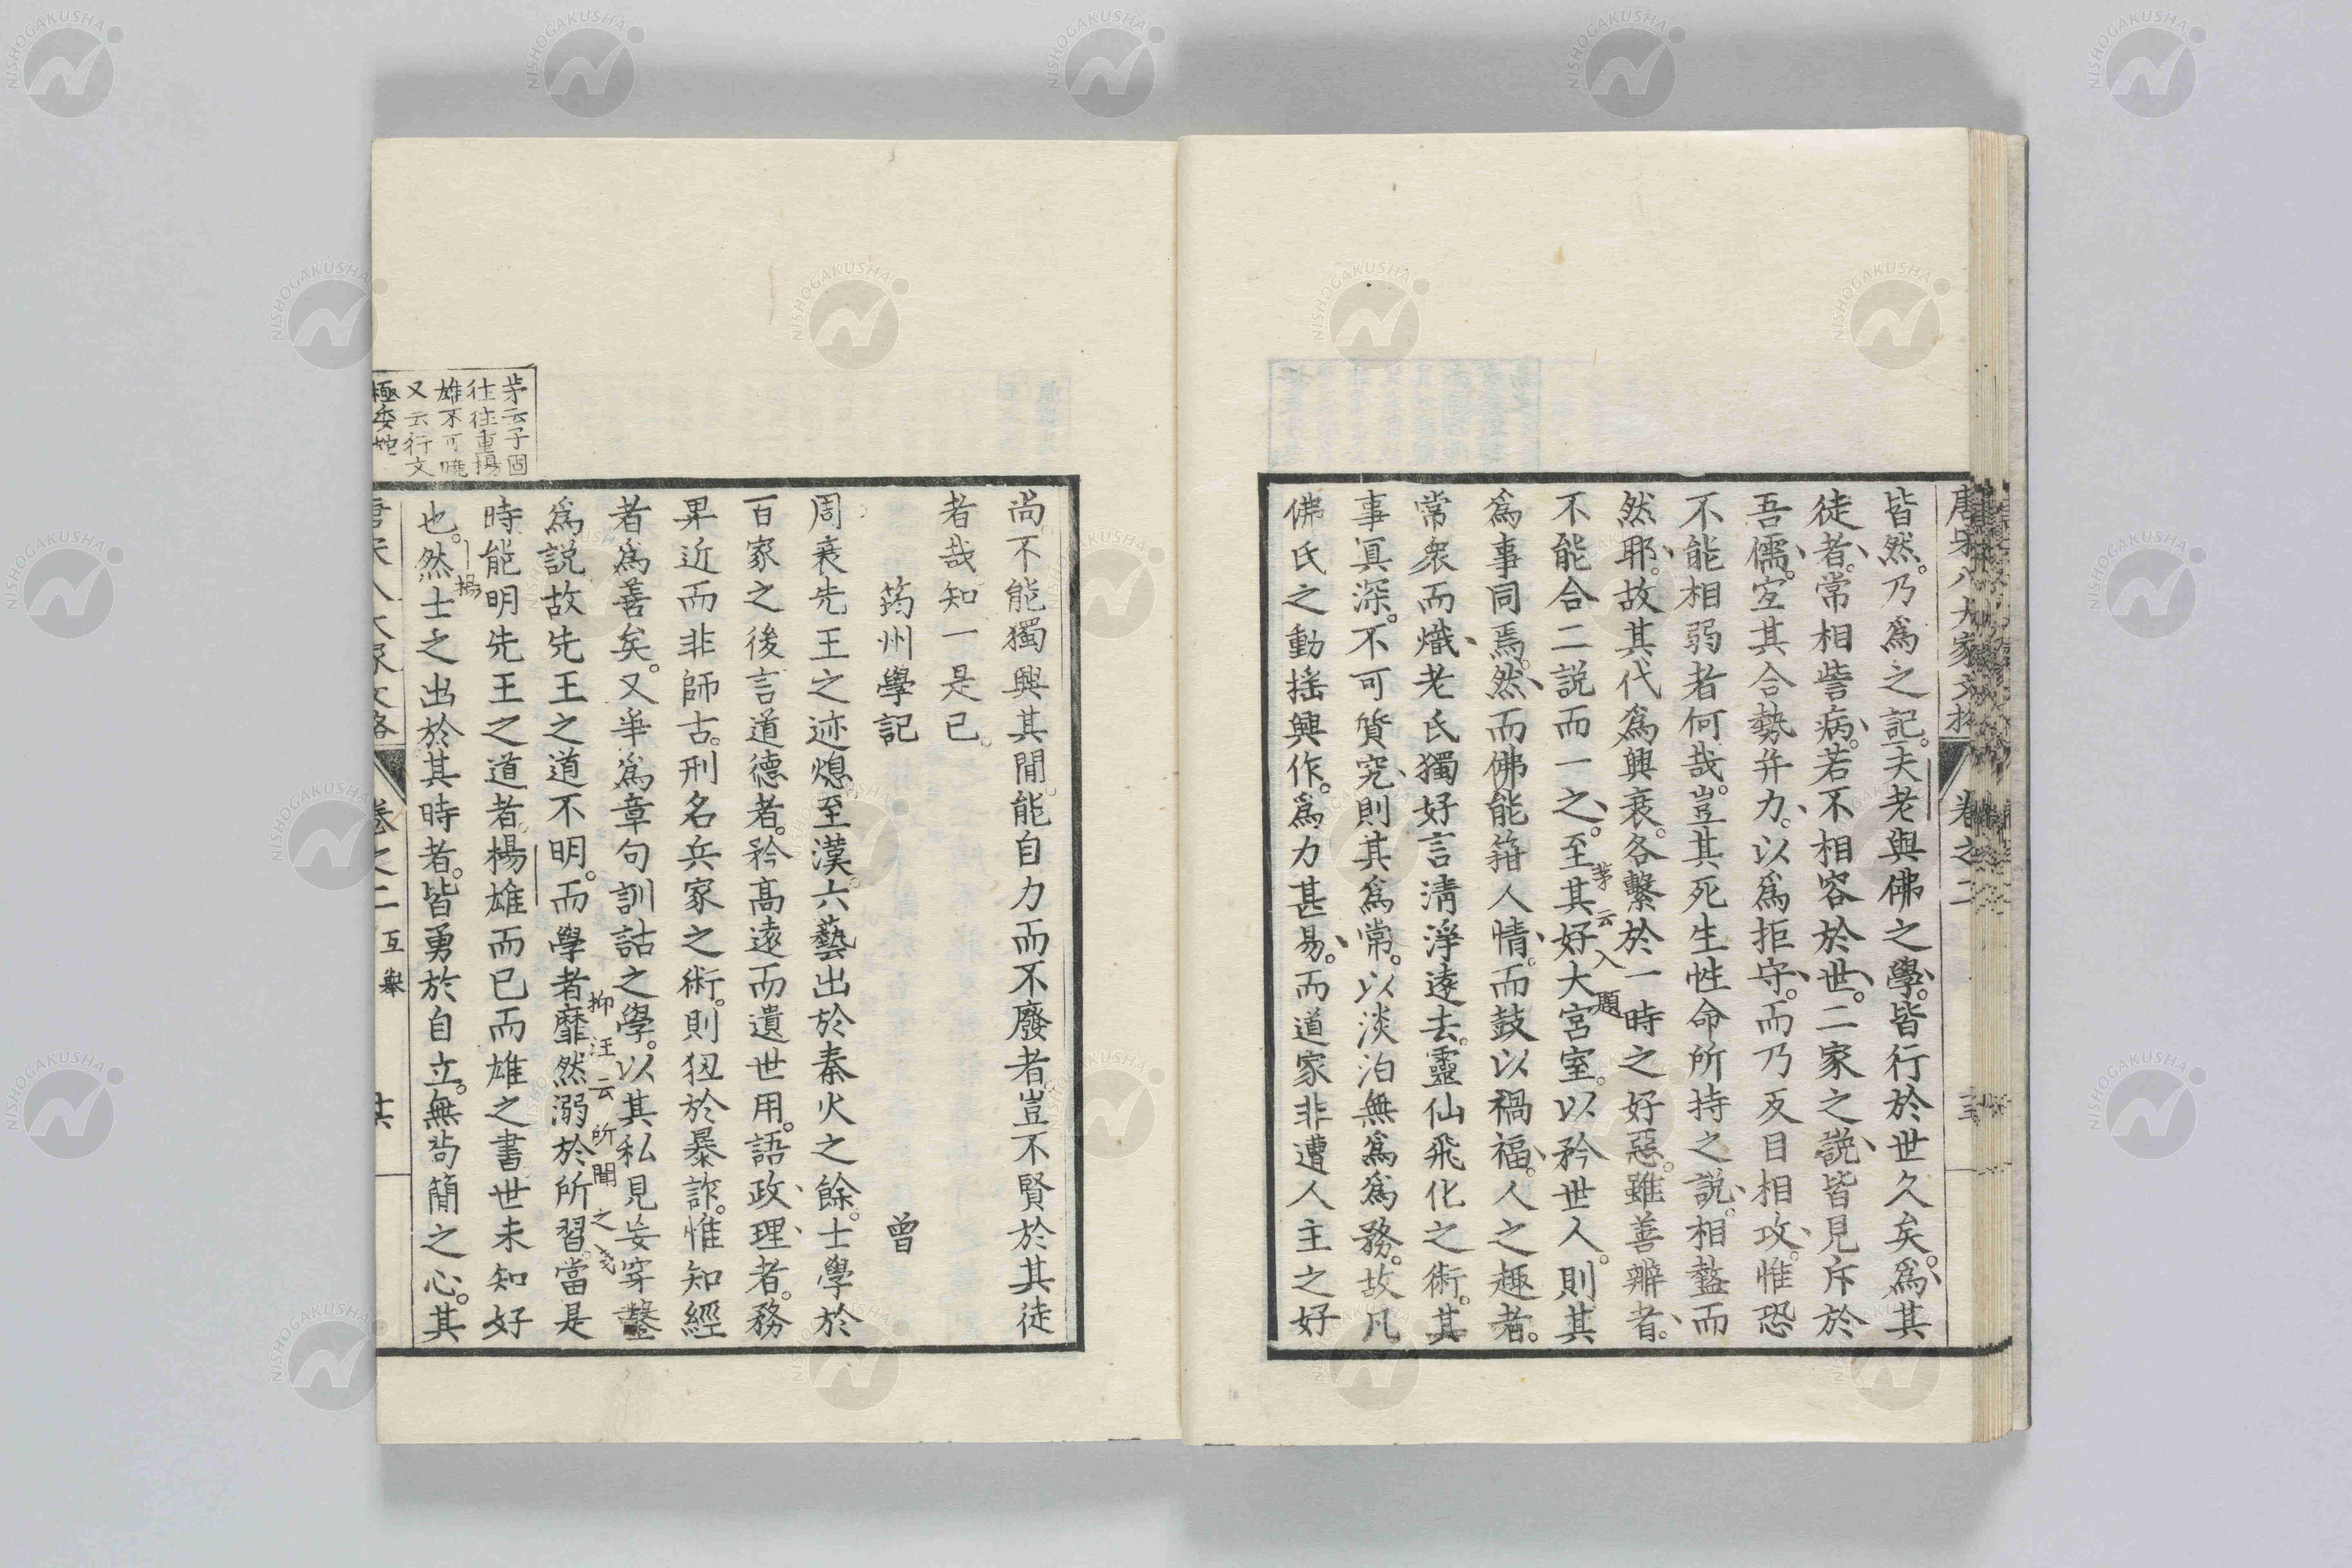 皆然。乃爲之記。夫老與佛之學。皆行於世久矣。爲其
徒者。常相訾病。若不相容於世。二家之說。皆見斥於
吾儒。宐其合勢并力。以爲拒守。而乃反目相攻。惟恐
不能相弱者何哉。豈其死生性命所持之說。相盭而
然耶。故其代爲興衰。各繫於一時之好惡。雖善辨者。
不能合二說而一之。至其好大宮室。以矜世人。則其
茅云入題
爲事同焉。然而佛能箝人情。而鼓以禍福。人之趣者。
常衆而熾。老氏獨好言淸淨遠去。靈仙飛化之術。其
事冥深。不可質究。則其爲常。以淡泊無爲爲務。故凡
佛氏之動揺興作。爲力甚易。而道家非遭人主之好
尚。不能獨興其間。能自力而不廢者。豈不賢於其徒
者哉。知一是已。
筠州學記 曾
周衰先王之迹熄。至漢六藝出於秦火之餘。士學於
百家之後。言道德者。矜高遠而遺世用。語政理者。務
卑近而非師古。刑名兵家之術。則狃於暴詐。惟知經
者爲善矣。又爭爲章句訓詁之學。以其私見妄穿鑿
爲說故先王之道不明。而學者靡然溺於所習。當是
抑 汪云所聞之淺
時能明先王之道者。楊雄而已而雄之書世未知好
也。然士之出於其時者。皆勇於自立。無茍簡之心。其
揚
茅云子固
往往重揚
雄不可曉
又云行文
極委
卷之二 互擧